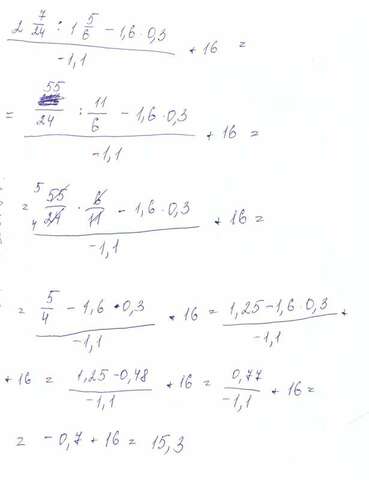 (2 7/24 : 1 5/6 - 1,6 · 0,3)/(-1,1) + 16 =
= (55/24 : 11/6 - 1,6 · 0,3)/(-1,1) + 16 =
= (5 55/4 24 · 6/11 - 1,6 · 0,3)/(-1,1) + 16 =
= (5/4 - 1,6 · 0,3)/(-1,1) + 16 = (1,25 - 1,6 · 0,3)/(-1,1) +
+ 16 = (1,25 - 0,48)/(-1,1) + 16 = 0,77/(-1,1) + 16 =
= -0,7 + 16 = 15,3